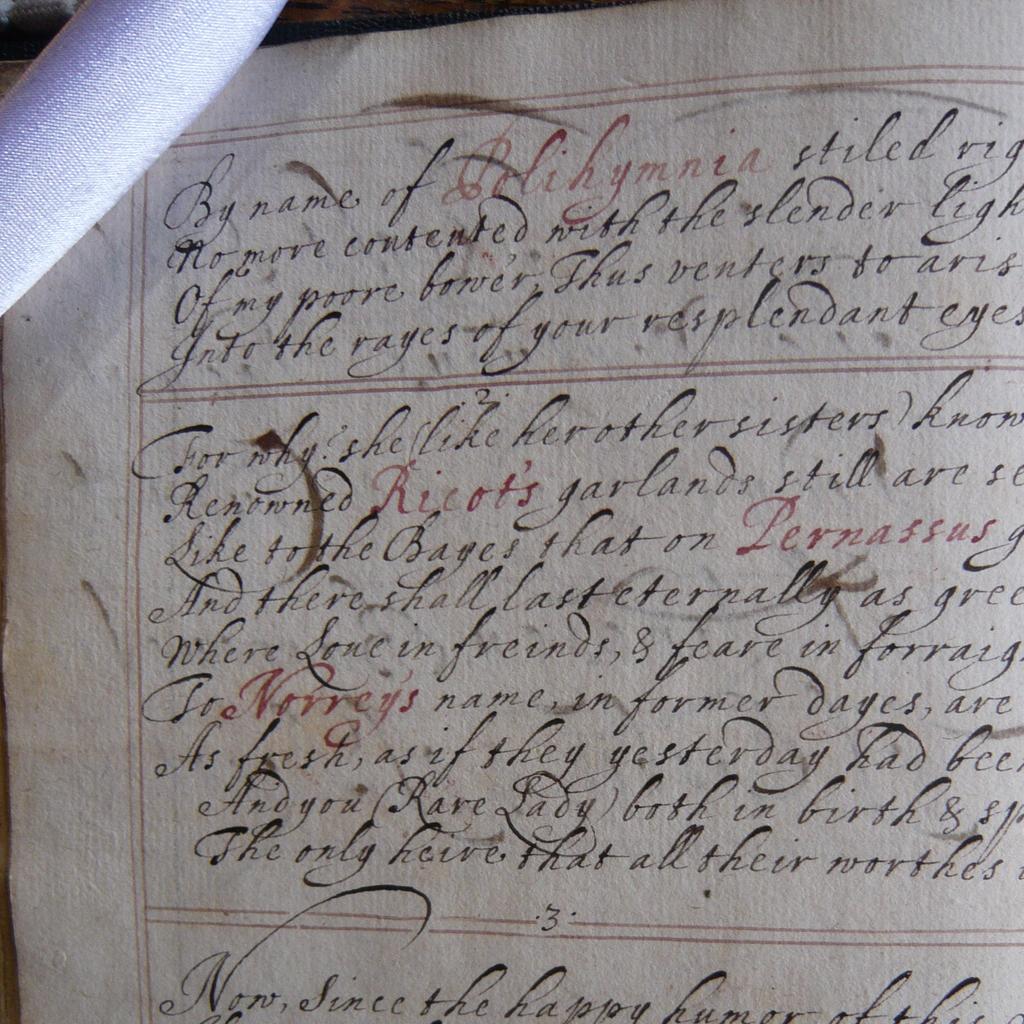 By name of Polihymnia stiled rig
No more contented with the slender ligh
Of my poore bower, Thus venters to aris
Into the rayes of your resplendant eyes
.2.
For why? she (like her other sisters) know
Renowned Ricot's garlands still are se
Like to the Bayes that on Pernassus g
And there shall last eternally as gree
Where Love in freinds, & feare in forraig
To Norreys name, in former dayes, are
As fresh, as if they yesterday had bee
And you (Rare Lady) both in birth & sp
The only heire that all their worthes
.3.
Now, since the happy humor of this